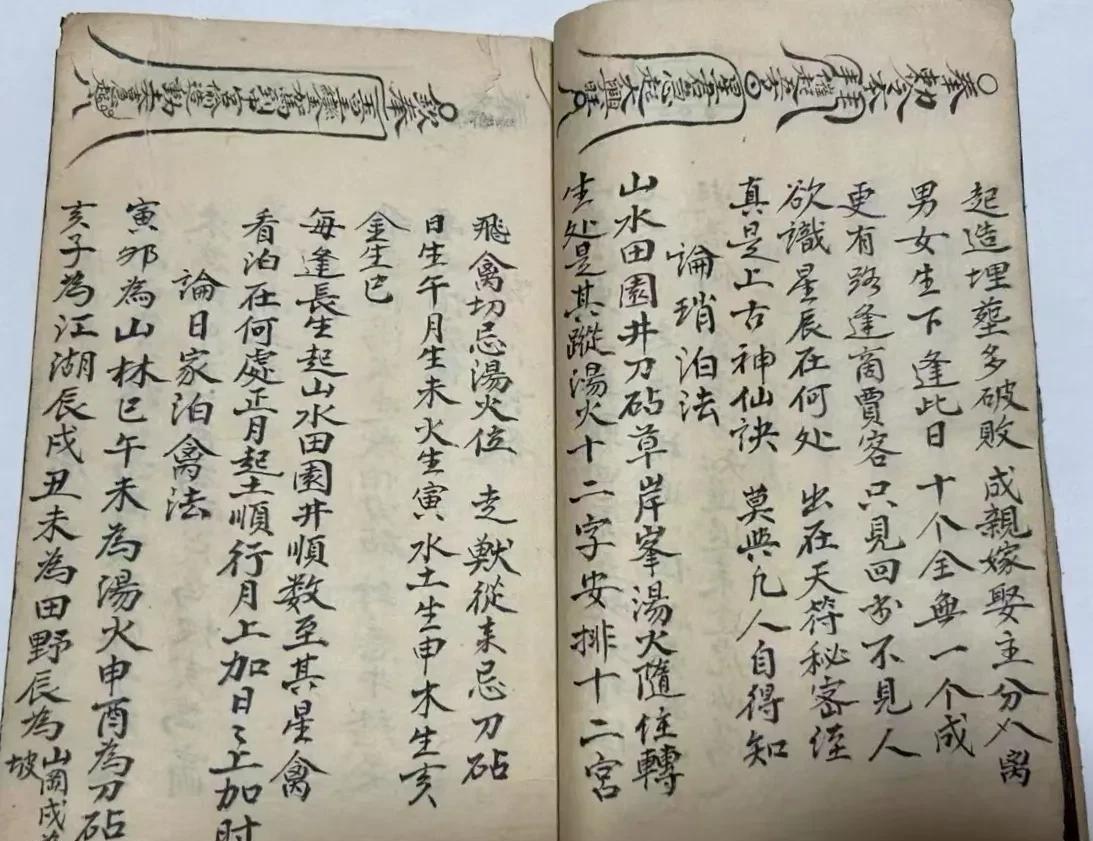 起造埋塟多破敗 成親嫁娶主分八离
男女生下逢此日 十个全無一个成
更有路逢商賈客 只見回步不見人
欲識星辰在何处 出在天符秘密径
真是上古神仙訣 莫與凡人自得知
論琑泊法
山水田園井刀砧草岸峯湯火隨住轉
生处是其蹤湯火十二字安排十二宮
飛禽切忌湯火位 走獸從来忌刀砧
日生午月生未火生寅水土生申木生亥
金生巳
每逢長生起山水田園井順数至其星禽
看泊在何處正月起土順行月上加日々上加时
論日家泊禽法
寅卯為山林巳午未為湯火申酉為刀砧
亥子為江湖辰戌丑未為田野辰為山岡戌為
坡